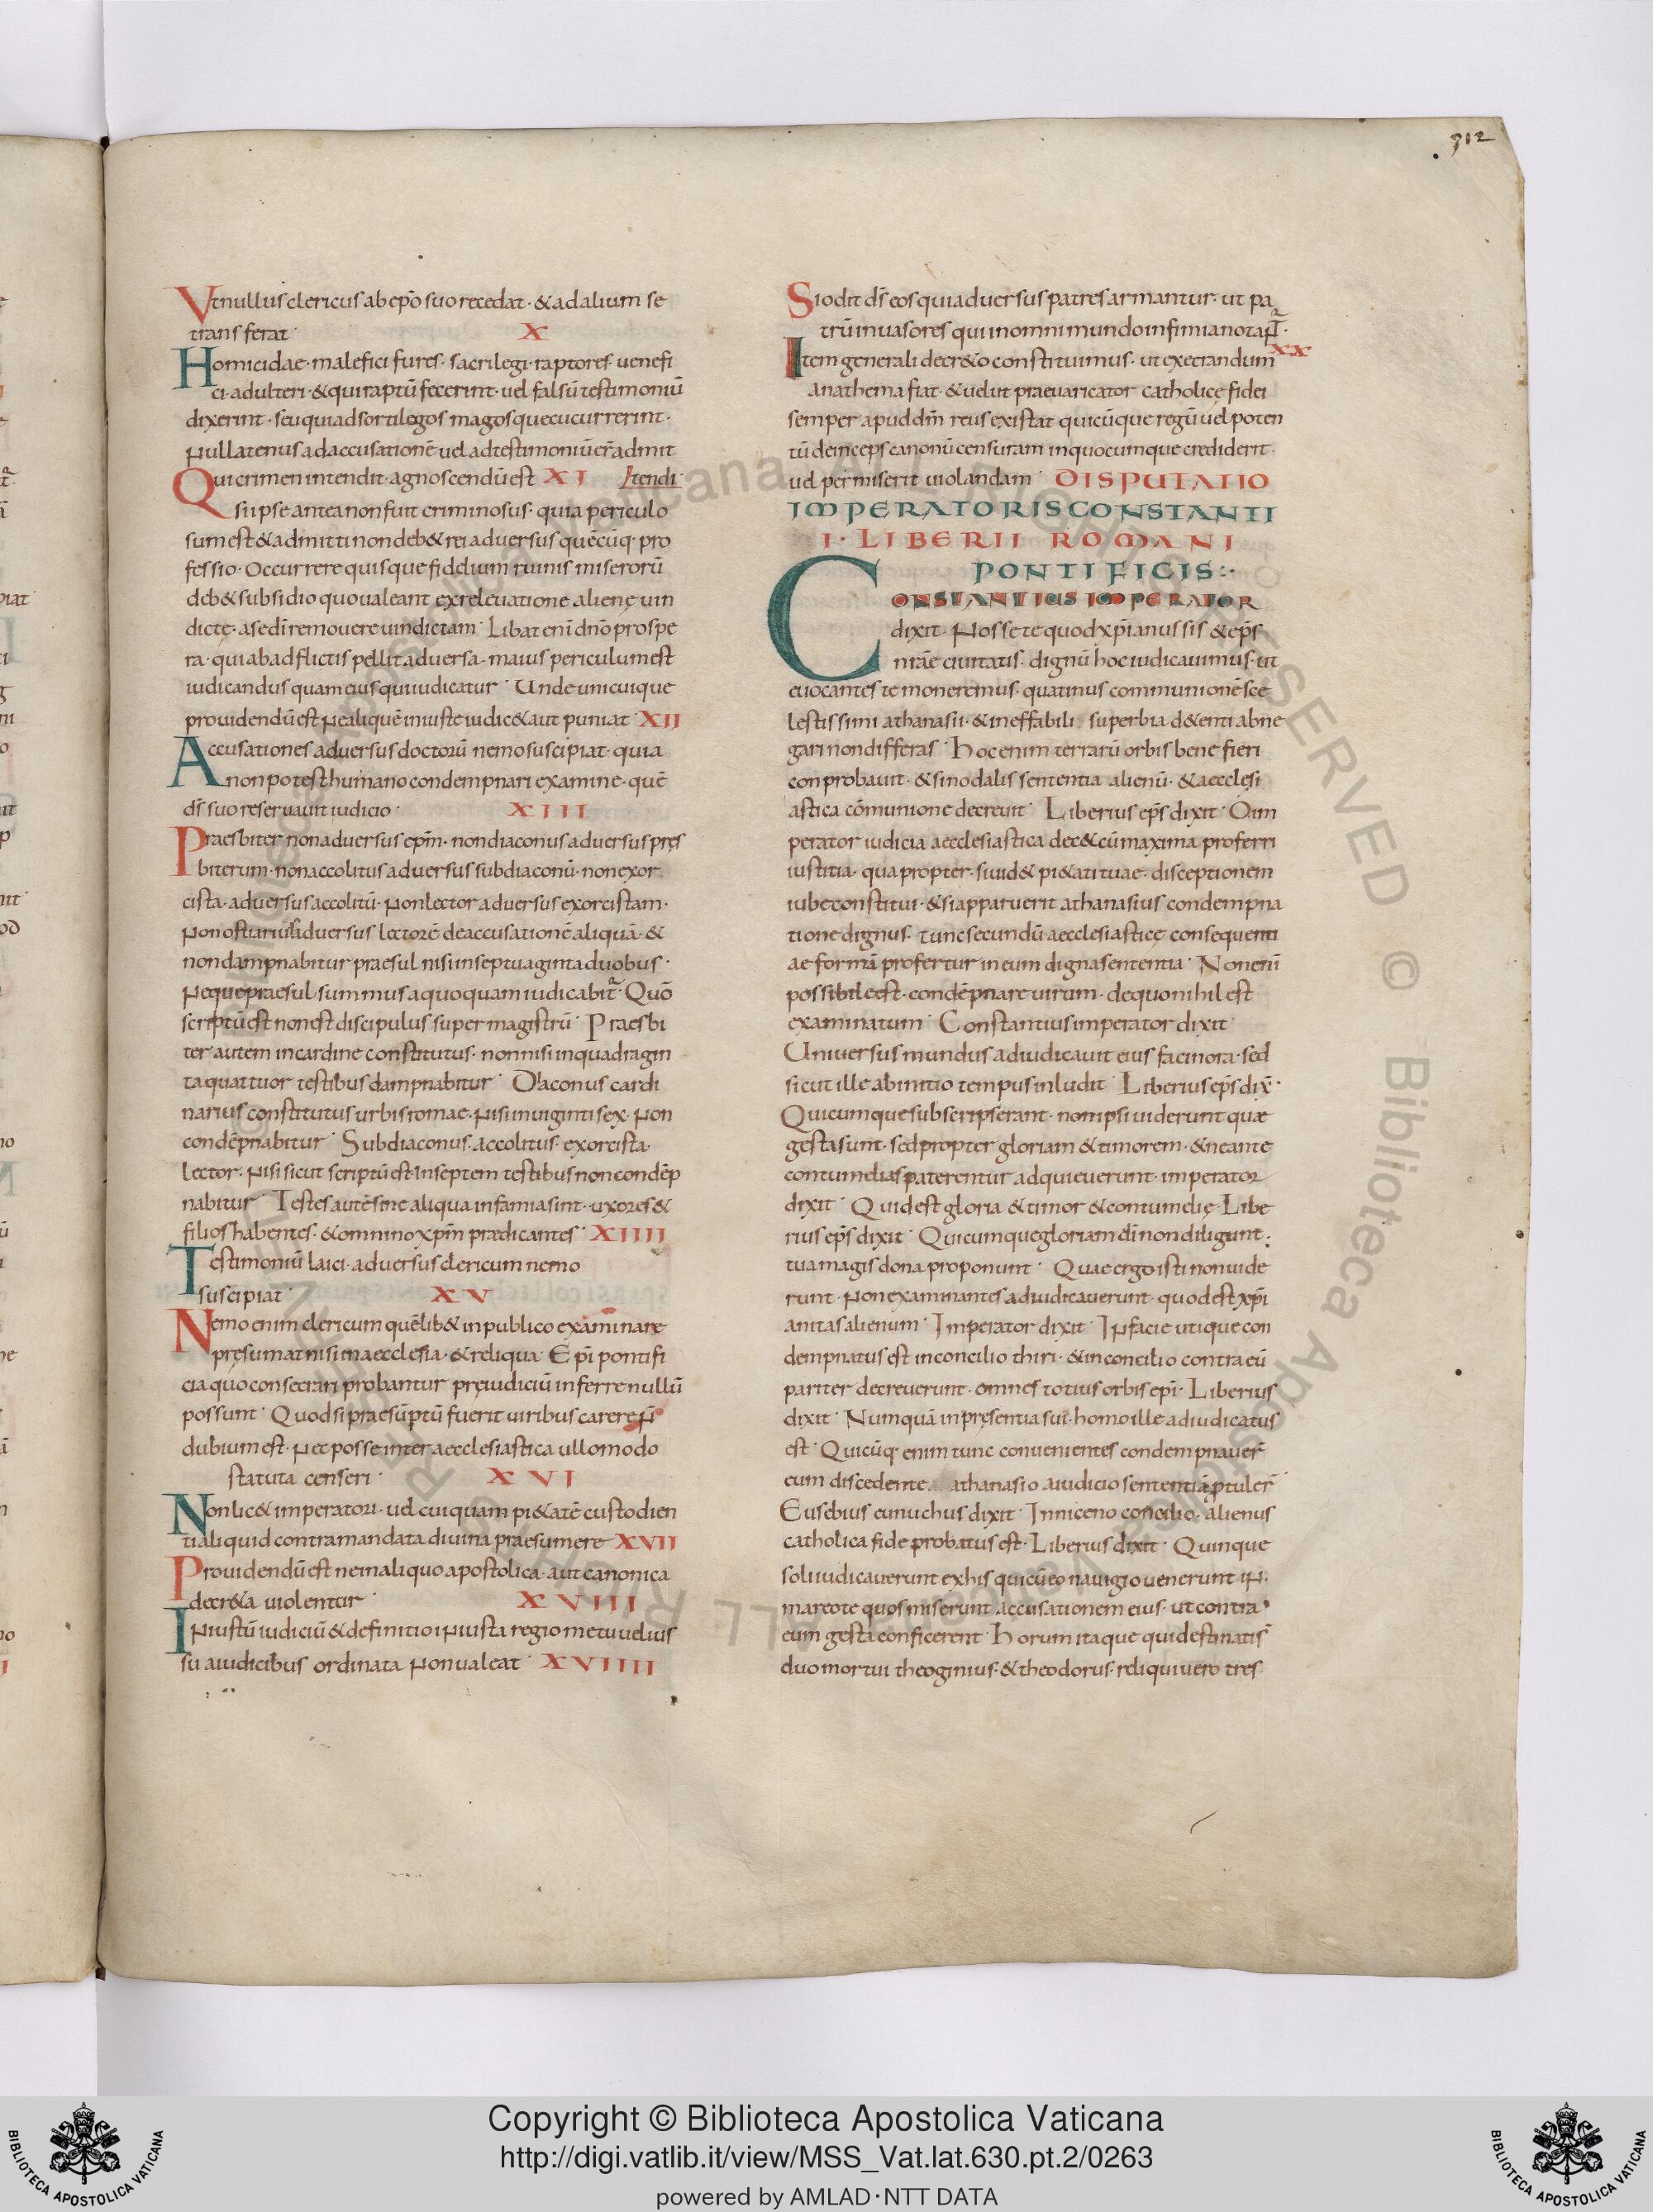 312
Ut nullus clericus ab ep̄o suo recedat · & ad alium se
transferat · X
Homicidae · malefici fures · sacrilegi · raptores · uenefi
ci · adulteri · & qui raptū fecerint · uel falsū testimoniū
dixerint · seu qui ad sortilegos magosque cucurrerint ·
Nullatenus ad accusationē uel ad testimoniū er̄ admit
Qui crimen intendit · agnoscendū est XI tendi ·
si ipse antea non fuit criminosus · quia periculo
sum est & admitti non deb& rei aduersus quēcūq· pro
fessio · Occurrere quisque fidelium ruinis miserorū
deb& subsidio quo ualeant ex releuatione alienę uin
dictę · a se dī remouere uindictam · Libat enī dn̄o prospe
ra · qui ab adflictis pellit aduersa · maius periculum est
iudicandus quam eius qui iudicatur · Unde unicuique
prouidendū est Ne aliquē iniuste iudic& aut puniat · XII
Accusationes aduersus doctorū nemo suscipiat · quia
non potest humano condempnari examine · quē
ds̄ suo reseruauit iudicio · XIII
Praesbiter non aduersus ep̄m · non diaconus aduersus pręs
biterum · non accolitus aduersus subdiaconū · non exor
cista · aduersus accolitū · Non lector aduersus exorcistam ·
Non ostiarius aduersus lectorē de accusationē aliquā · &
non dampnabitur praesul nisi in septuaginta duobus ·
Neque praesul summus a quoquam iudicabit᷑ · Quō
scriptū est non est discipulus super magistrū · Praesbi
ter autem in cardine constitutus · non nisi in quadragin
ta quattuor testibus dampnabitur · Diaconus cardi
narius constitutus urbis romae · Nisi in uiginti sex · Non
condēpnabitur · Subdiaconus · accolitus · exorcista ·
Lector · Nisi sicut scriptū est · In septem testibus non condēp
nabitur · Testes autē sine aliqua infamia sint · uxores &
filios habentes · & omnino xp̄m praedicantes · XIIII
Testimoniū laici · aduersus clericum nemo
suscipiat · XV
Nemo enim clericum quēlib& in publico examinare
pręsumat nisi in aecclesia · & reliqua · Ep̄i pontifi
cia quo consecrari probantur pręiudiciū inferre nullū
possunt · Quod si praesūptū fuerit uiribus carere N̄
dubium est · Nec posse inter aecclesiastica ullo modo
statuta censeri · XVI
Non lic& imperatori · uel cuiquam pi&atē custodien
ti aliquid contra mandata diuina praesumere XVII
Prouidendū est ne in aliquo apostolica · aut canonica
decr&a uiolentur · XVIII
INiustū iudiciū & definitio iNiusta regio metu uel ius
su a iudicibus ordinata Non ualeat · XVIIII
Si odit ds̄ eos qui aduersus patres armantur · ut pa
trū inuasores qui in omni mundo infimia notat᷑ ·
Item generali decr&o constituimus · ut execrandum XX
anathema fiat · & uelut praeuaricator catholicę fidei
semper apud dm̄ reus existat quicūque regū uel poten
tū deinceps canonū censuram in quocumque crediderit ·
uel permiserit uiolandam · DISPUTATIO
IMPERATORIS CONSTANTI
I · LIBERII ROMANI
PONTIFICIS :·
CONSTANTIUS IMPERATOR
dixit · Nosse te quod xp̄ianus sis & ep̄s
nr̄ae ciuitatis · dignū hoc iudicauimus · ut
euocantes te moneremus · quatinus communionē sce
lestissimi athanasii · & ineffabili superbia d&enti abne
gari non differas · Hoc enim terrarū orbis bene fieri
conprobauit · & sinodalis sententia alienū · & aecclesi
astica cōmunione decreuit · Liberius ep̄s dixit · O im
perator iudicia aecclesiastica dec& cū maxima proferri
iustitia · quapropter · si uid& pi&ati tuae · disceptionem
iube constitui · & si apparuerit athanasius condempna
tione dignus · tunc secundū aecclesiasticę consequenti
ae formā profertur in eum digna sententia · Non enī
possibile est · condēpnare uirum · de quo nihil est
examinatum · Constantius imperator dixit ·
Uniuersus mundus adiudicauit eius facinora · sed
sicut ille ab initio tempus inludit · Liberius ep̄s dix̄ ·
Quicumque subscripserant · non ipsi uiderunt quae
gesta sunt · sed propter gloriam & timorem · & ne a nte
contumelias paterentur adquieuerunt · imperator
dixit · Quid est gloria & timor & contumelię · Libe
rius ep̄s dixit · Quicumque gloriam dī non diligunt ·
tua magis dona proponunt · Quae ergo isti non uide
runt · Non examinantes adiudicauerunt · quod est xp̄i
anitas alienum · Imperator dixit · IN facie utique con
dempnatus est in concilio thiri · & in concilio contra eū
pariter decreuerunt · omnes totius orbis ep̄i · Liberius
dixit · Numquā in pręsentia sui · homo ille adiudicatus
est · Quicūq· enim tunc conuenientes condempnauer̄
eum discedente athanasio a iudicio sententiā ꝓtuler̄ ·
Eusebius eunuchus dixit · In niceno concilio · alienus
catholica fide probatus est · Liberius dixit · Quinque
soli iudicauerunt ex his qui cū eo nauigio uenerunt iN ·
mareote quos miserunt accusationem eius · ut contra
eum gesta conficerent · Horum itaque qui destinatis̄
duo mortui theoginius · & theodorus · reliqui uero tres
Copyright © Biblioteca Apostolica Vaticana
http://digi.vatlib.it/view/MSS_Vat.lat.630.pt.2/0263
powered by AMLAD·NTT DATA
BIBLIOTECA APOSTOLICA VATICANA
BIBLIOTECA APOSTOLICA VATICANA